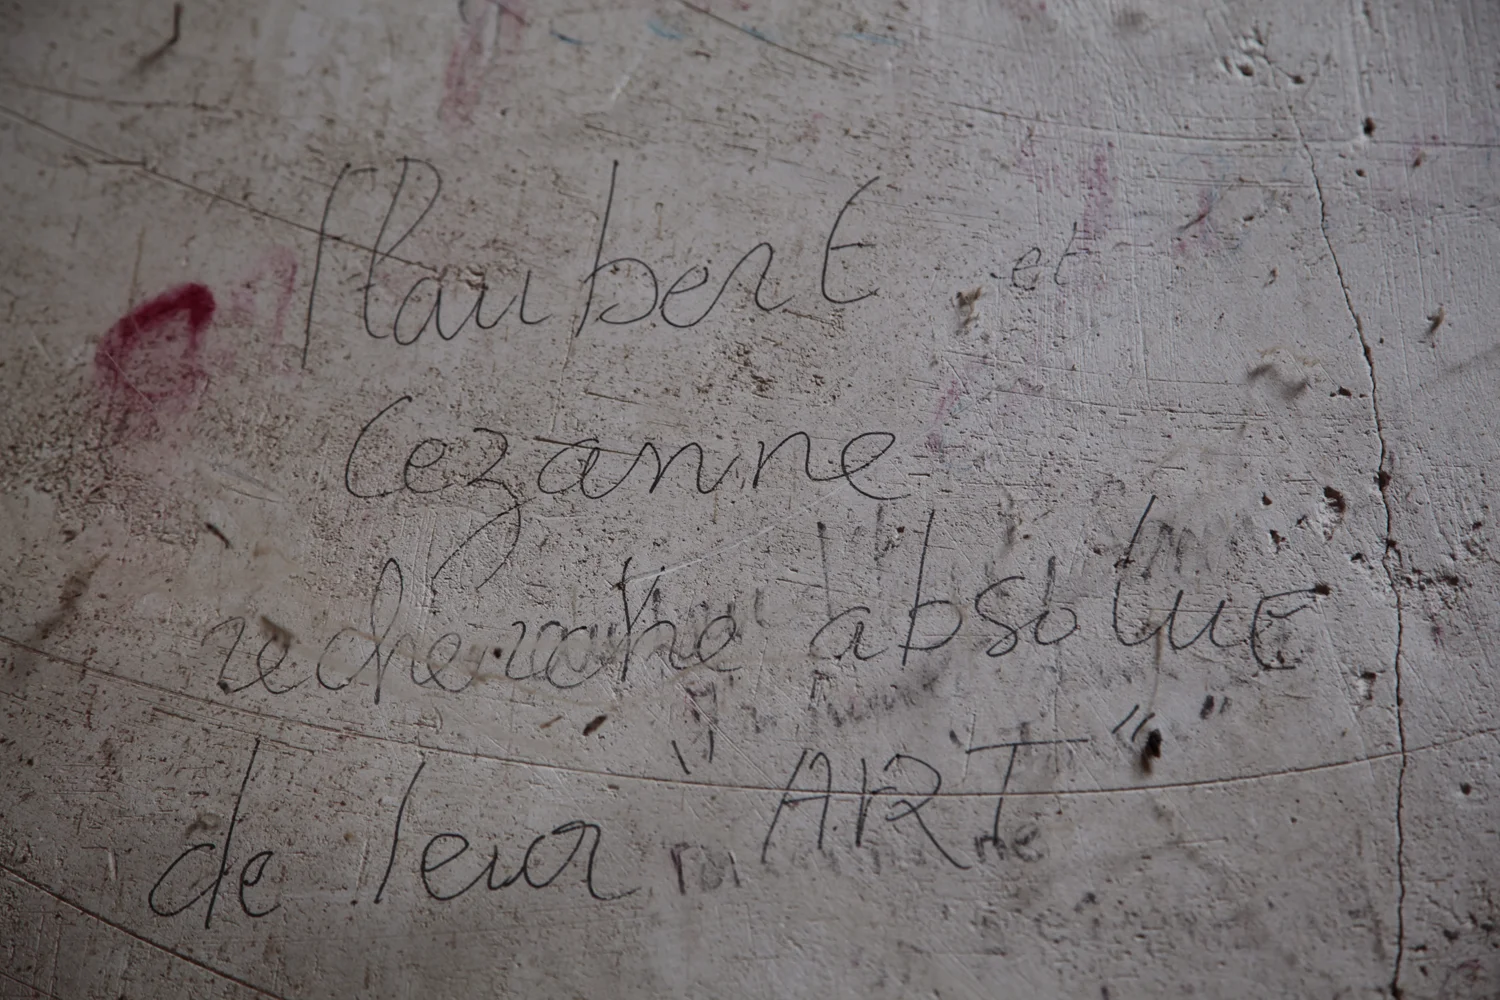 Flaubert et
Cezanne
recherche absolue
de leur "ART"